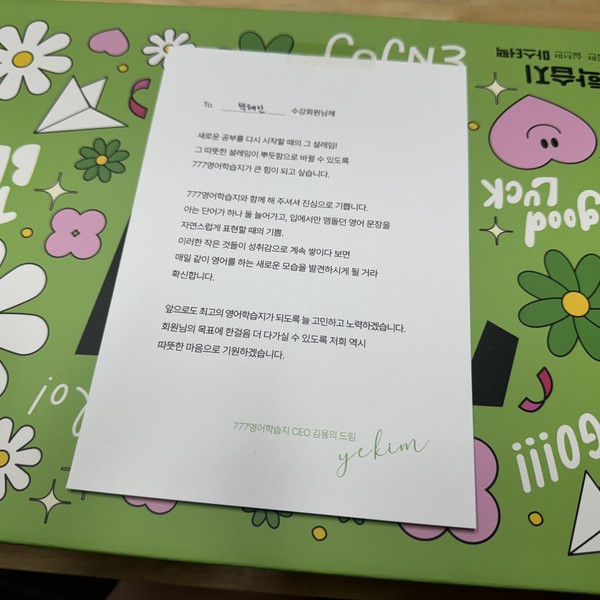 ENJOY
마스터팩
학습지
good
LUCK
To. 박혜안 수강회원님께
새로운 공부를 다시 시작할 때의 그 설레임!
그 따뜻한 설레임이 뿌듯함으로 바뀔 수 있도록
777영어학습지가 큰 힘이 되고 싶습니다.
777영어학습지와 함께 해 주셔서 진심으로 기쁩니다.
아는 단어가 하나 둘 늘어가고, 입에서만 맴돌던 영어 문장을
자연스럽게 표현할 때의 기쁨.
이러한 작은 것들이 성취감으로 계속 쌓이다 보면
매일 같이 영어를 하는 새로운 모습을 발견하시게 될 거라
확신합니다.
앞으로도 최고의 영어학습지가 되도록 늘 고민하고 노력하겠습니다.
회원님의 목표에 한걸음 더 다가실 수 있도록 저희 역시
따뜻한 마음으로 기원하겠습니다.
777영어학습지 CEO 김용의 드림
yekim
GO!!!